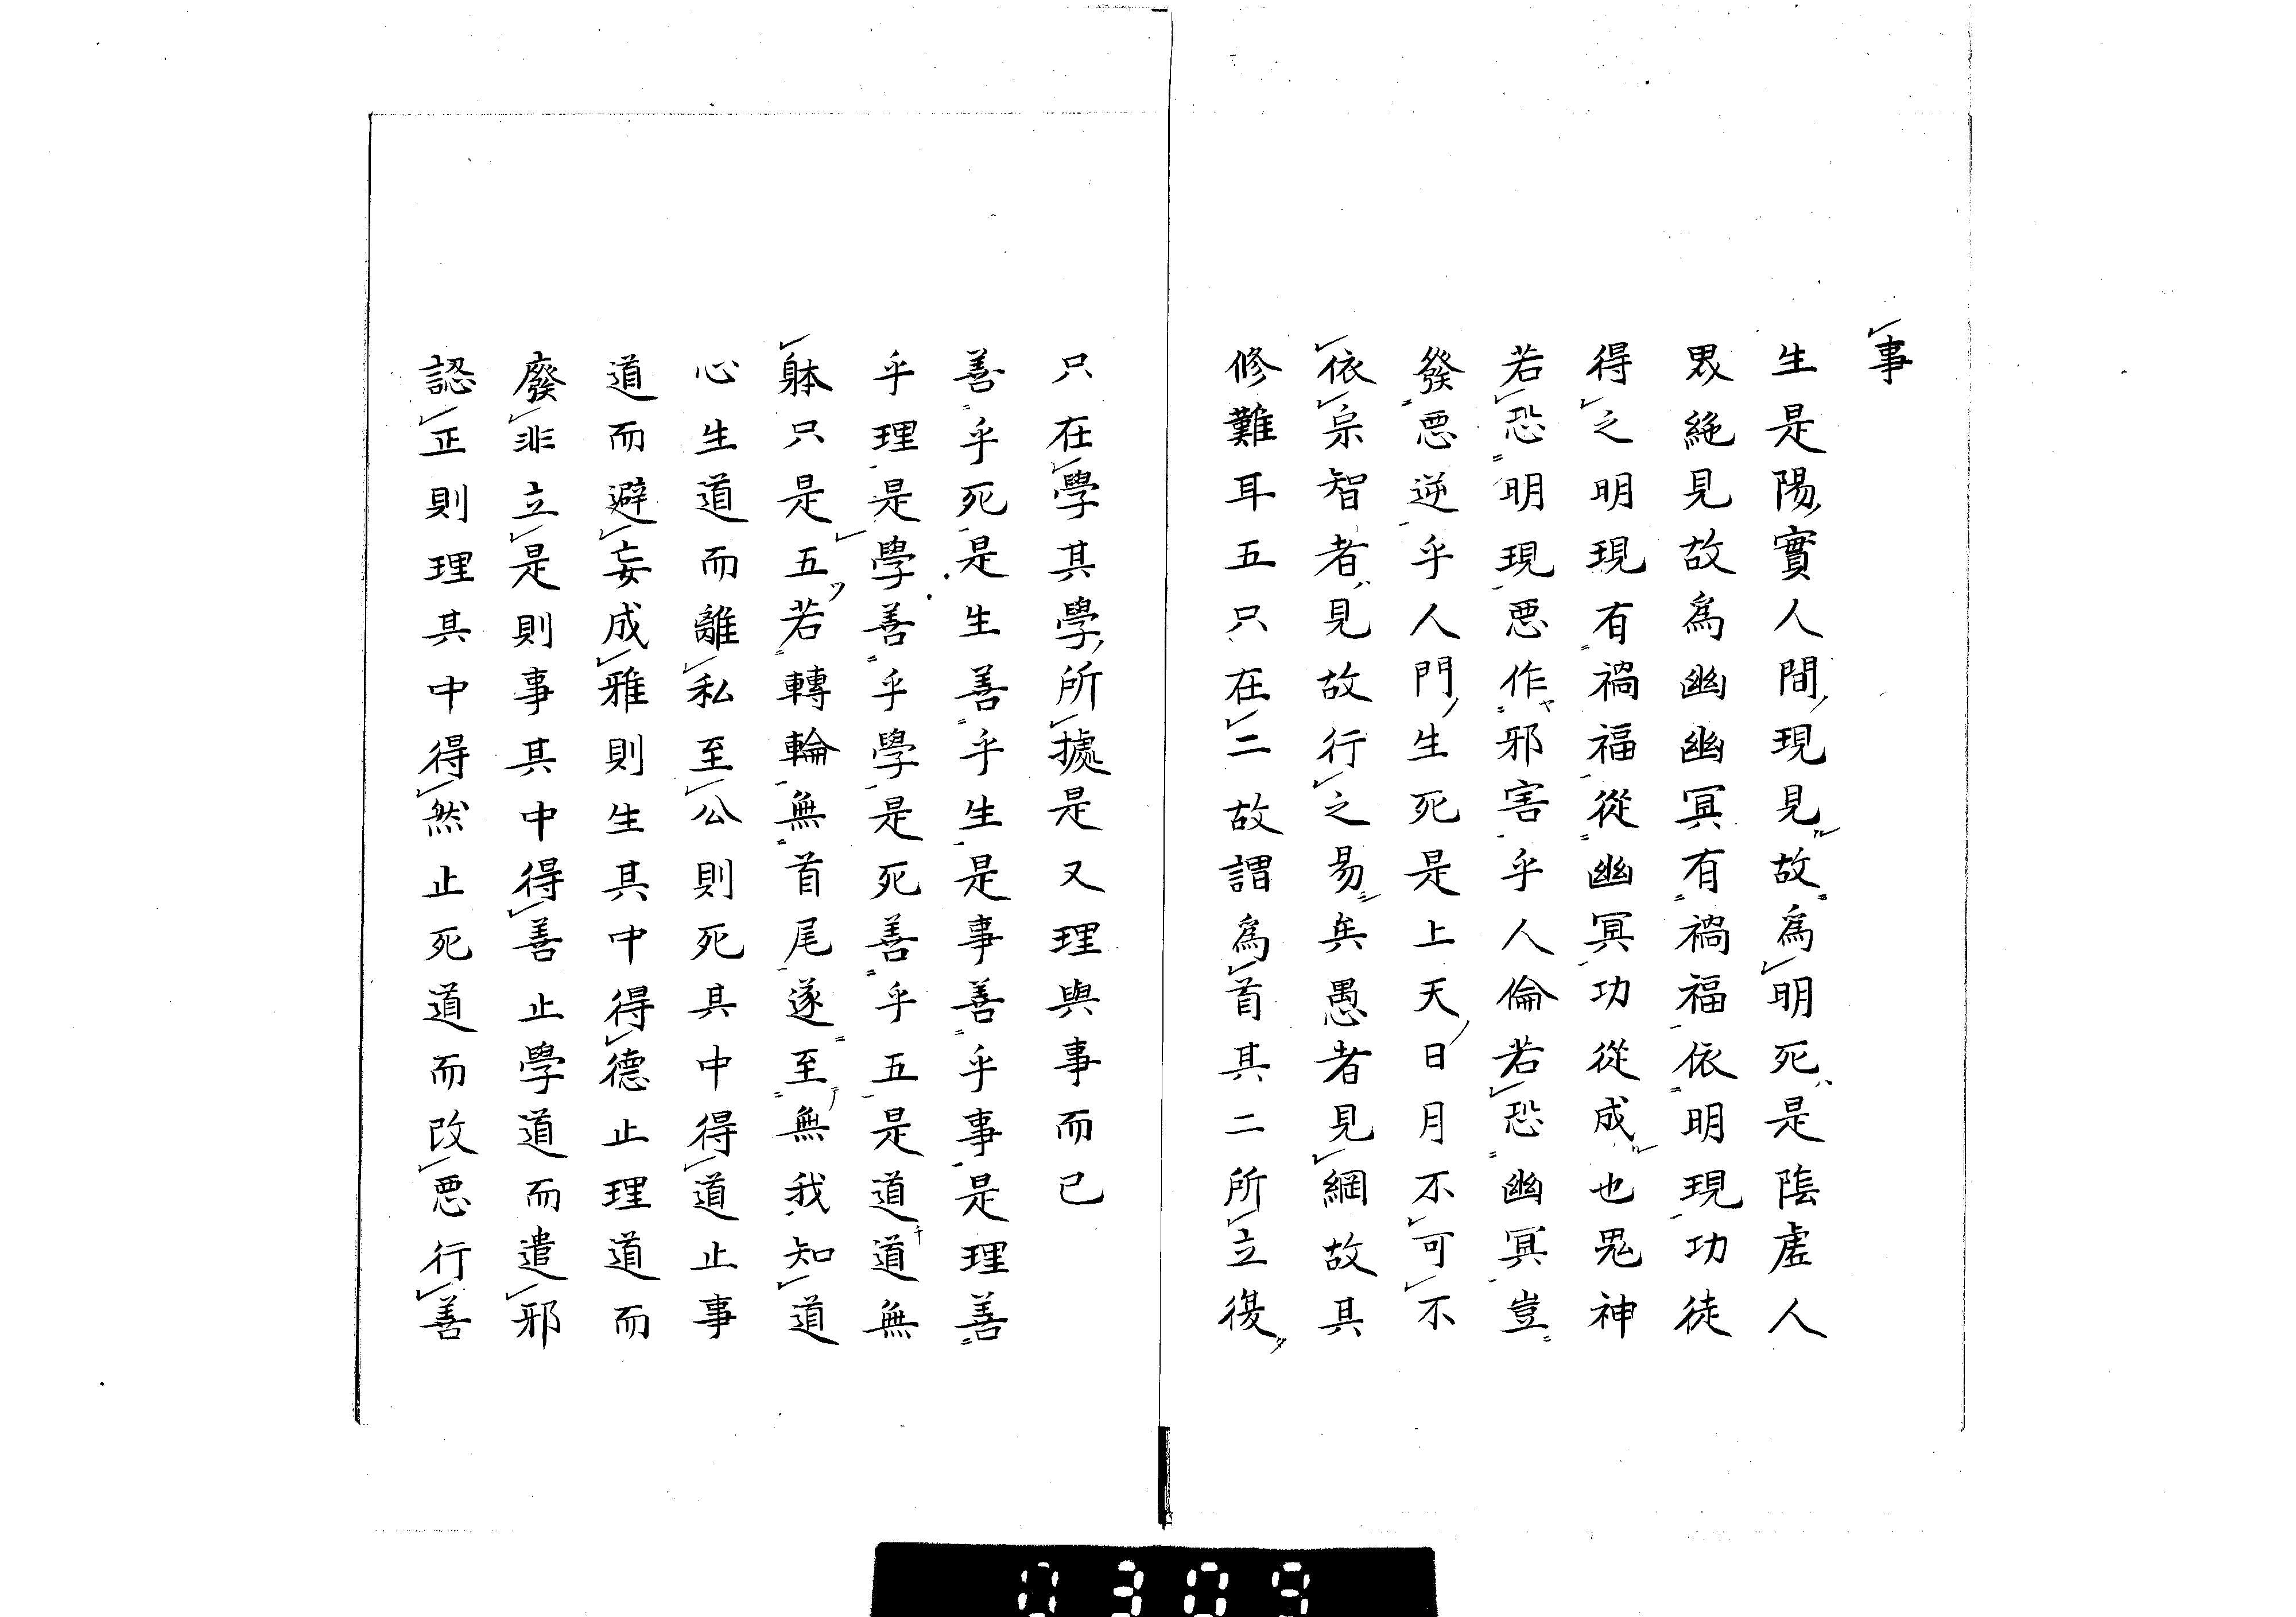 事
生是陽實人間現見故為明死是陰虛人
界絶見故為幽幽冥有禍福依明現功徒
得之明現有禍福從幽冥功從成也鬼神
若恐明現悪作邪害乎人倫若恐幽冥豈
發悪逆乎人門生死是上天日月不可不
依宗智者見故行之易矣愚者見綱故其
修難耳五只在二故謂為首其二所立復
只在學其學所據是又理與事而已
善乎死是生善乎生是事善乎事是理善
乎理是學善乎學是死善乎五是道道無
躰只是五若轉輪無首尾遂至無我知道
心生道而離私至公則死其中得道止事
道而避妄成雅則生其中得德止理道而
廢非立是則事其中得善止學道而遣邪
認正則理其中得然止死道而改悪行善
0309